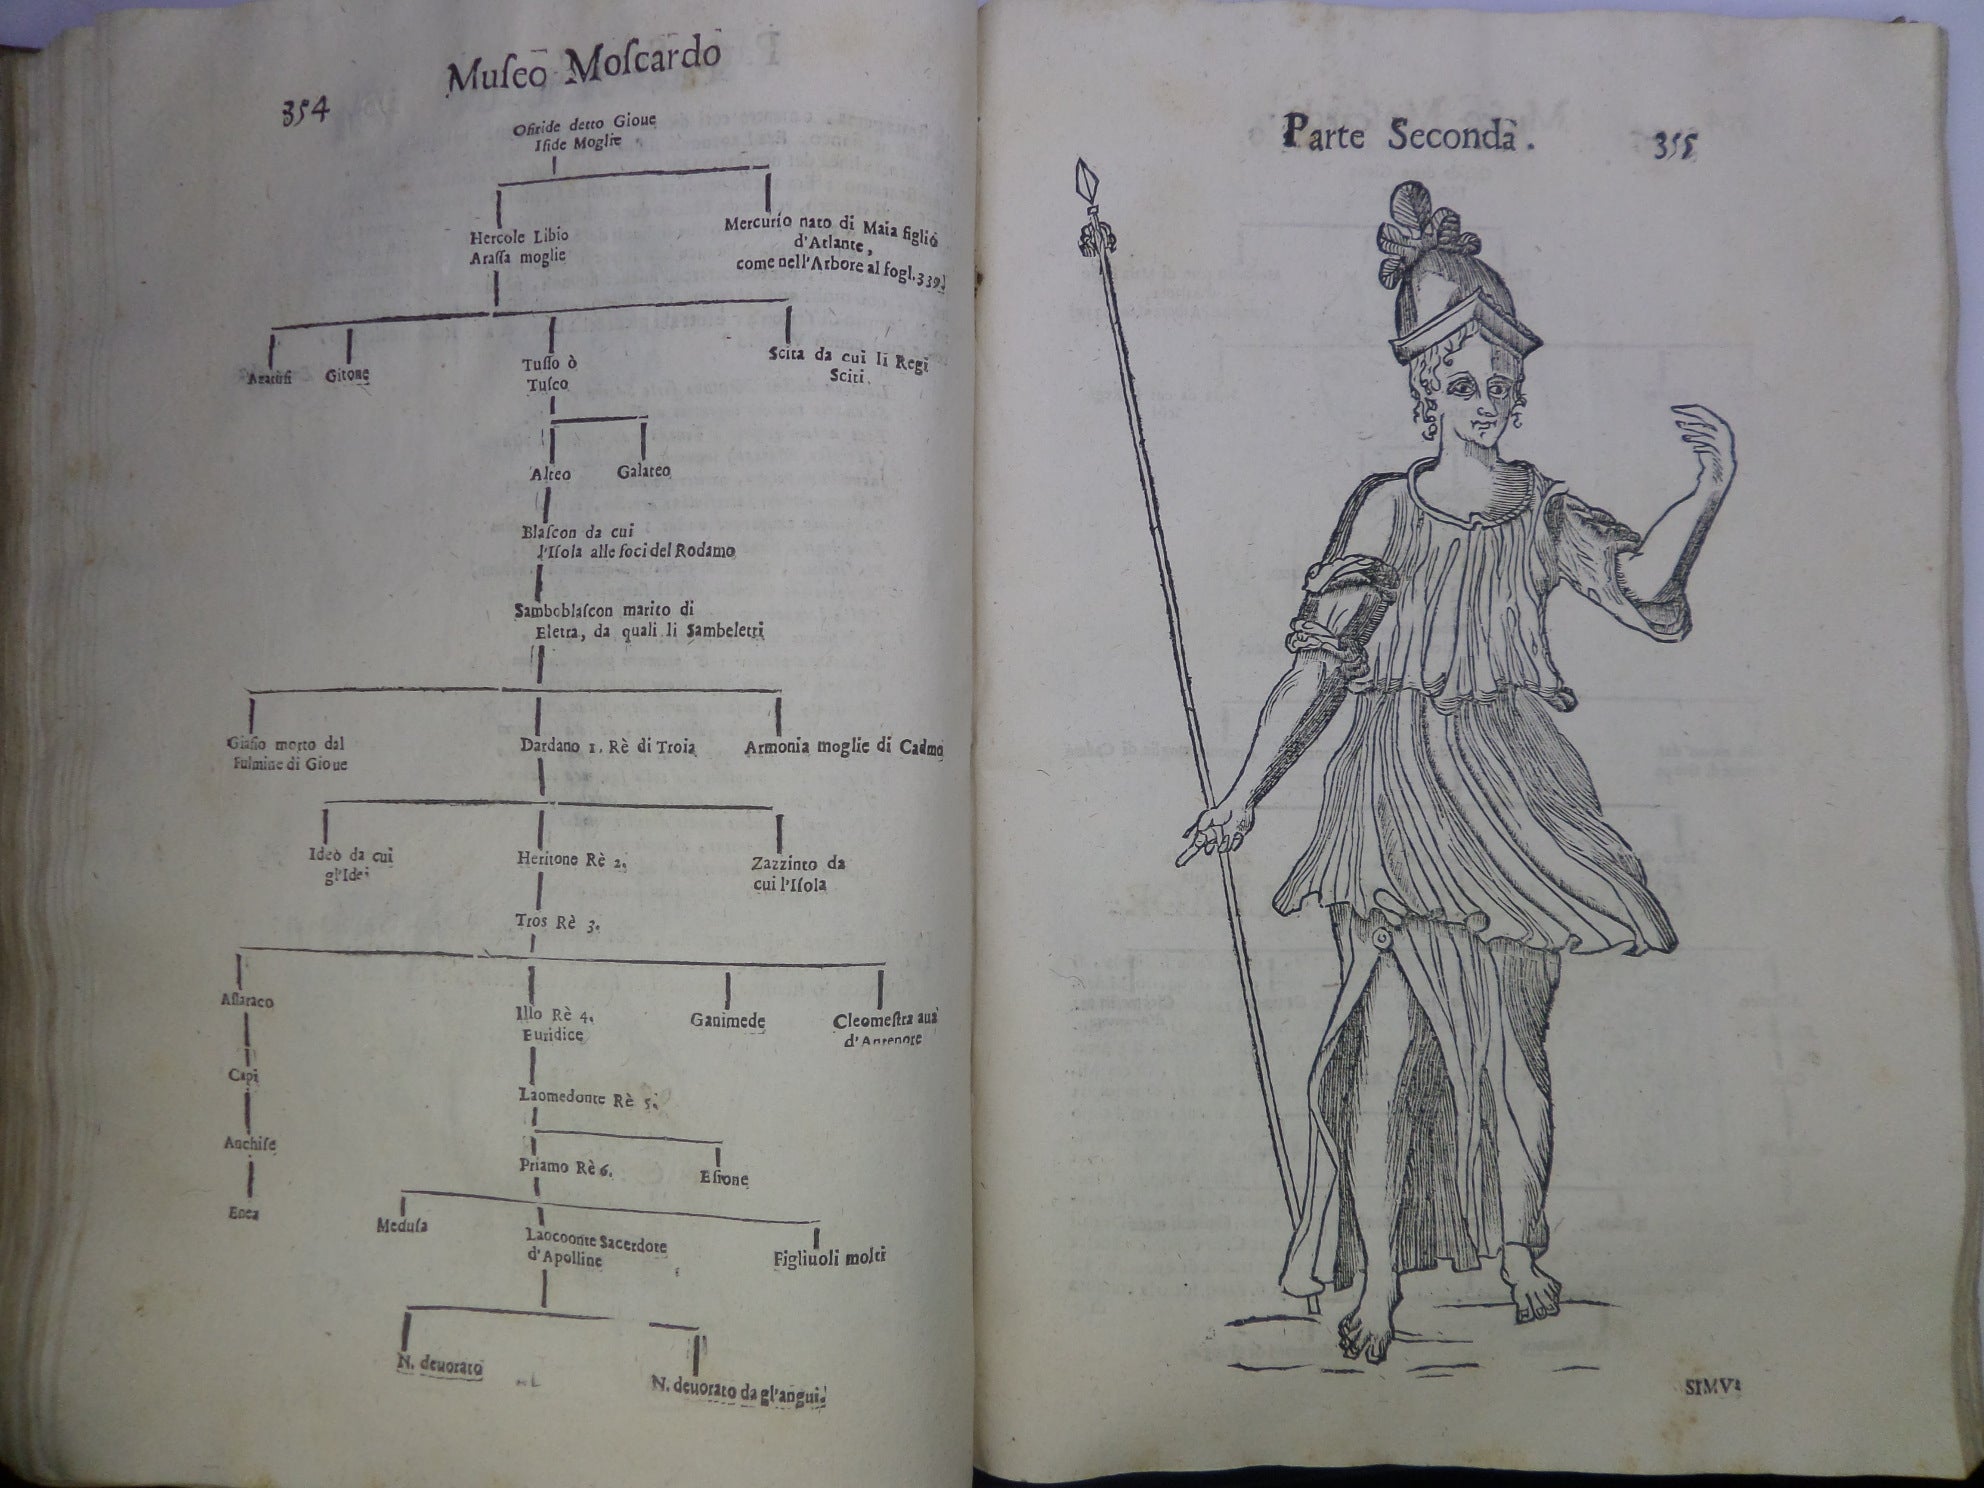 354
Muſeo Moſcardo
Oſiride detto Gioue
Iſide Moglie
Hercole Libio
Araſſa moglie
Mercurio nato di Maia figlio
d'Atlante,
come nell'Arbore al fogl. 339.
Gitone
Tuſſo ò
Tuſco
Scita da cui li Regi
Sciti.
Alteo
Galateo
Blaſcon da cui
l'Iſola alle foci del Rodamo
Samboblaſcon marito di
Eletra, da quali li Sambeletri
Giaſio morto dal
Fulmine di Gioue
Dardano 1. Rè di Troia
Armonia moglie di Cadmo
Ideò da cui
gl'Idei
Heritone Rè 2.
Zazzinto da
cui l'Iſola
Tros Rè 3.
Aſſaraco
Illo Rè 4.
Euridice
Ganimede
Cleomeſtra aua
d'Antenore
Capi
Laomedonte Rè 5.
Anchiſe
Priamo Rè 6.
Eſione
Enea
Meduſa
Laocoonte Sacerdote
d'Apolline
Figliuoli molti
N. deuorato
N. deuorato da gl'angui.
Parte Seconda.
355